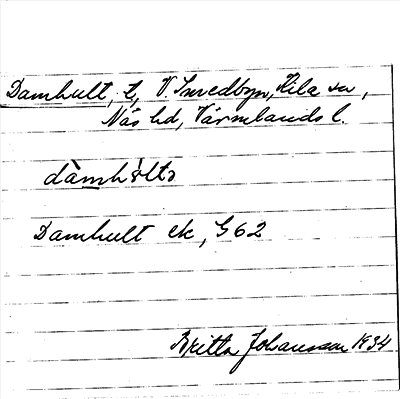 Damhult, t, V. Smedbyn, Kila sn,
Näs hd, Värmlands l.
dàmhòltə
Damhult ek, G62
Britta Johansson 1934